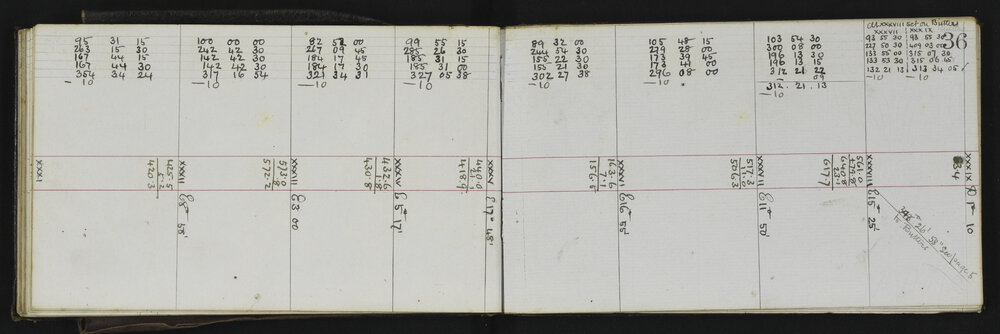 At XXXVIII set on Button
XXXVII XXXIX
36
95 31 15
263 15 30
167 44 15
167 44 30
354 34 24
—10
100 00 00
242 42 30
142 42 30
142 42 30
317 16 54
—10
82 52 00
267 09 45
184 17 45
184 17 30
321 34 39
—10
99 55 15
285 26 30
185 31 15
185 31 00
327 05 38
—10
89 32 00
244 54 30
155 22 30
155 21 30
302 27 38
—10
105 48 15
279 28 00
173 39 45
173 41 00
296 08 00
—10
103 54 30
300 08 00
196 13 30
196 13 15
312 21 22
09
312.21.13
—10
93 55 30 93 55 30
227 50 30 409 03 00
133 55 00 315 07 30
133 53 30 315 06 45
132 21 13 313 34 05
—10 —10
XXXI
425.5
5.2
420.3
XXXII
E 8° 55'
573.0
.8
572.2
XXXIII
E 3 00
432.6
1.8
430.8
XXXIV
E 5° 17'
440.0
21.1
418.9
XXXV
E 17° 48'
163.6
7.1
156.5
XXXVI
E 16° 55'
517.3
11.0
506.3
XXXVIII
E 11° 50'
561.0
640.8
23.1
617.7
XXXIII
E 15° 25'
34
XXXIX
R 1° 10
26' 58" See page 5
to Pandora